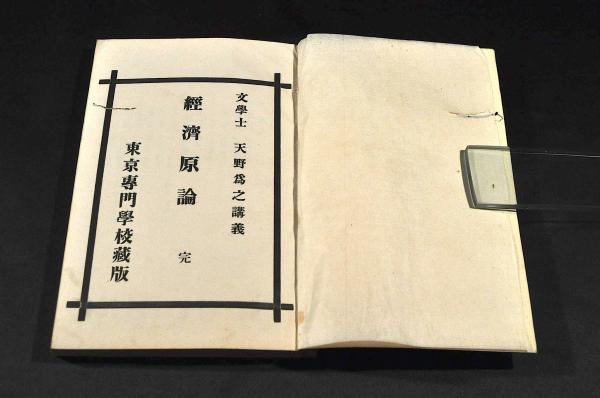 文學士 天野爲之講義
經濟原論 完
東京專門學校藏版